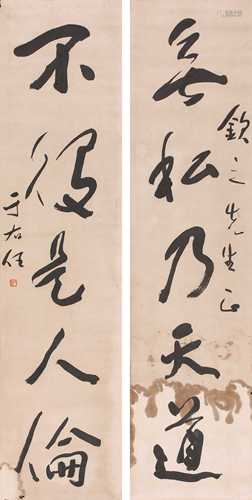 欽之先生正
無私乃天道
不役是人倫
于右任